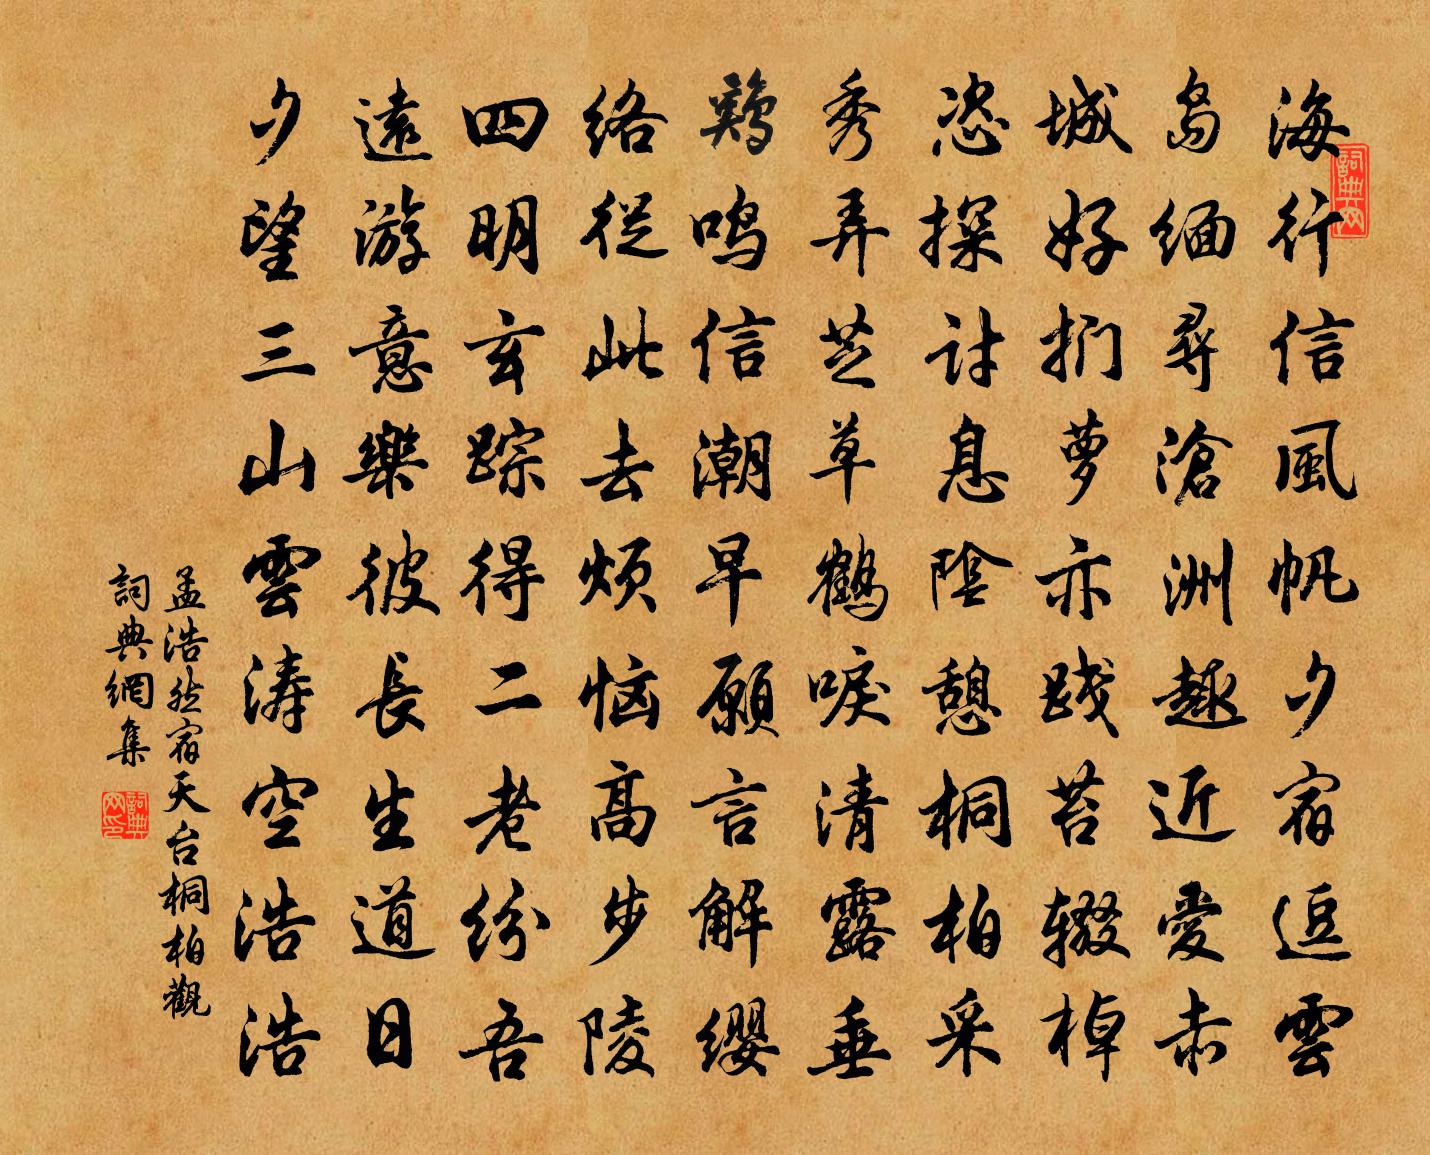 海行信風帆夕宿逗雲
島緬尋滄洲趣近愛赤
城好捫蘿亦踐苔輟棹
恣探討息陰憩桐柏采
秀弄芝草鶴唳清露垂
鷄鳴信潮早願言解纓
絡從此去煩惱高步陵
四明玄踪得二老紛吾
遠游意樂彼長生道日
夕望三山雲濤空浩浩
孟浩然宿天台桐柏觀
詞典網集
詞典網
詞典網印